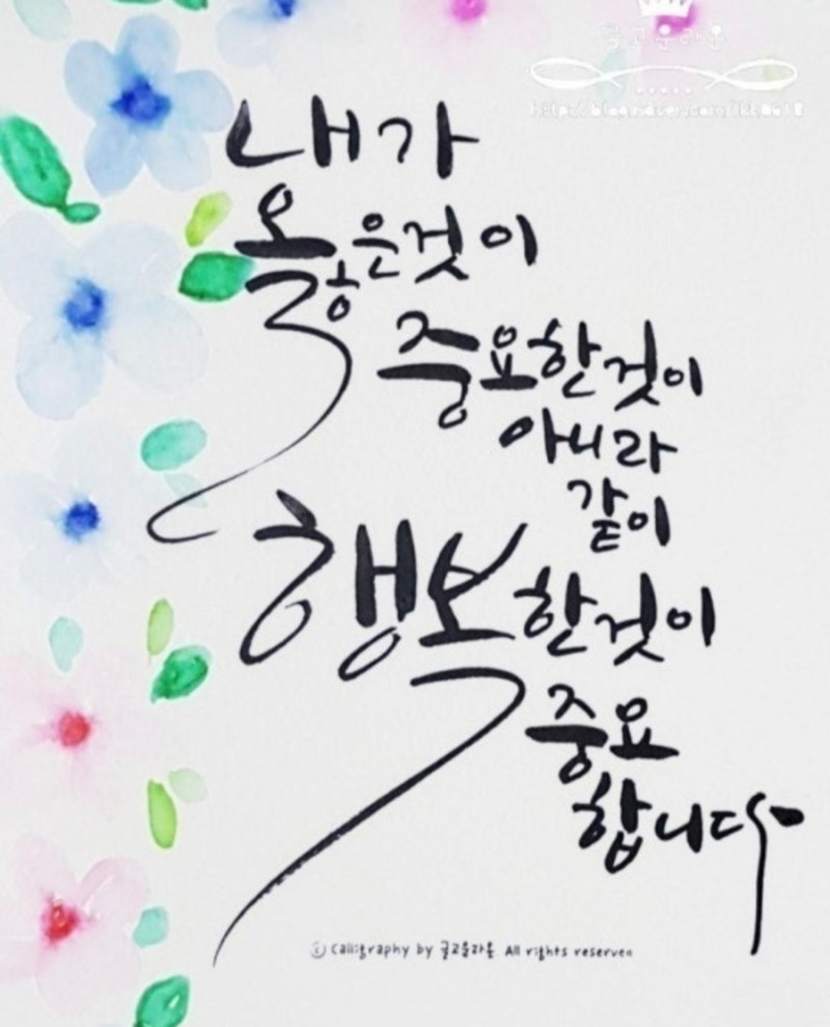 내가
옳은것이
중요한것이
아니라
같이
행복한것이
중요
합니다
Calligraphy by 글고운라온 All rights reserved